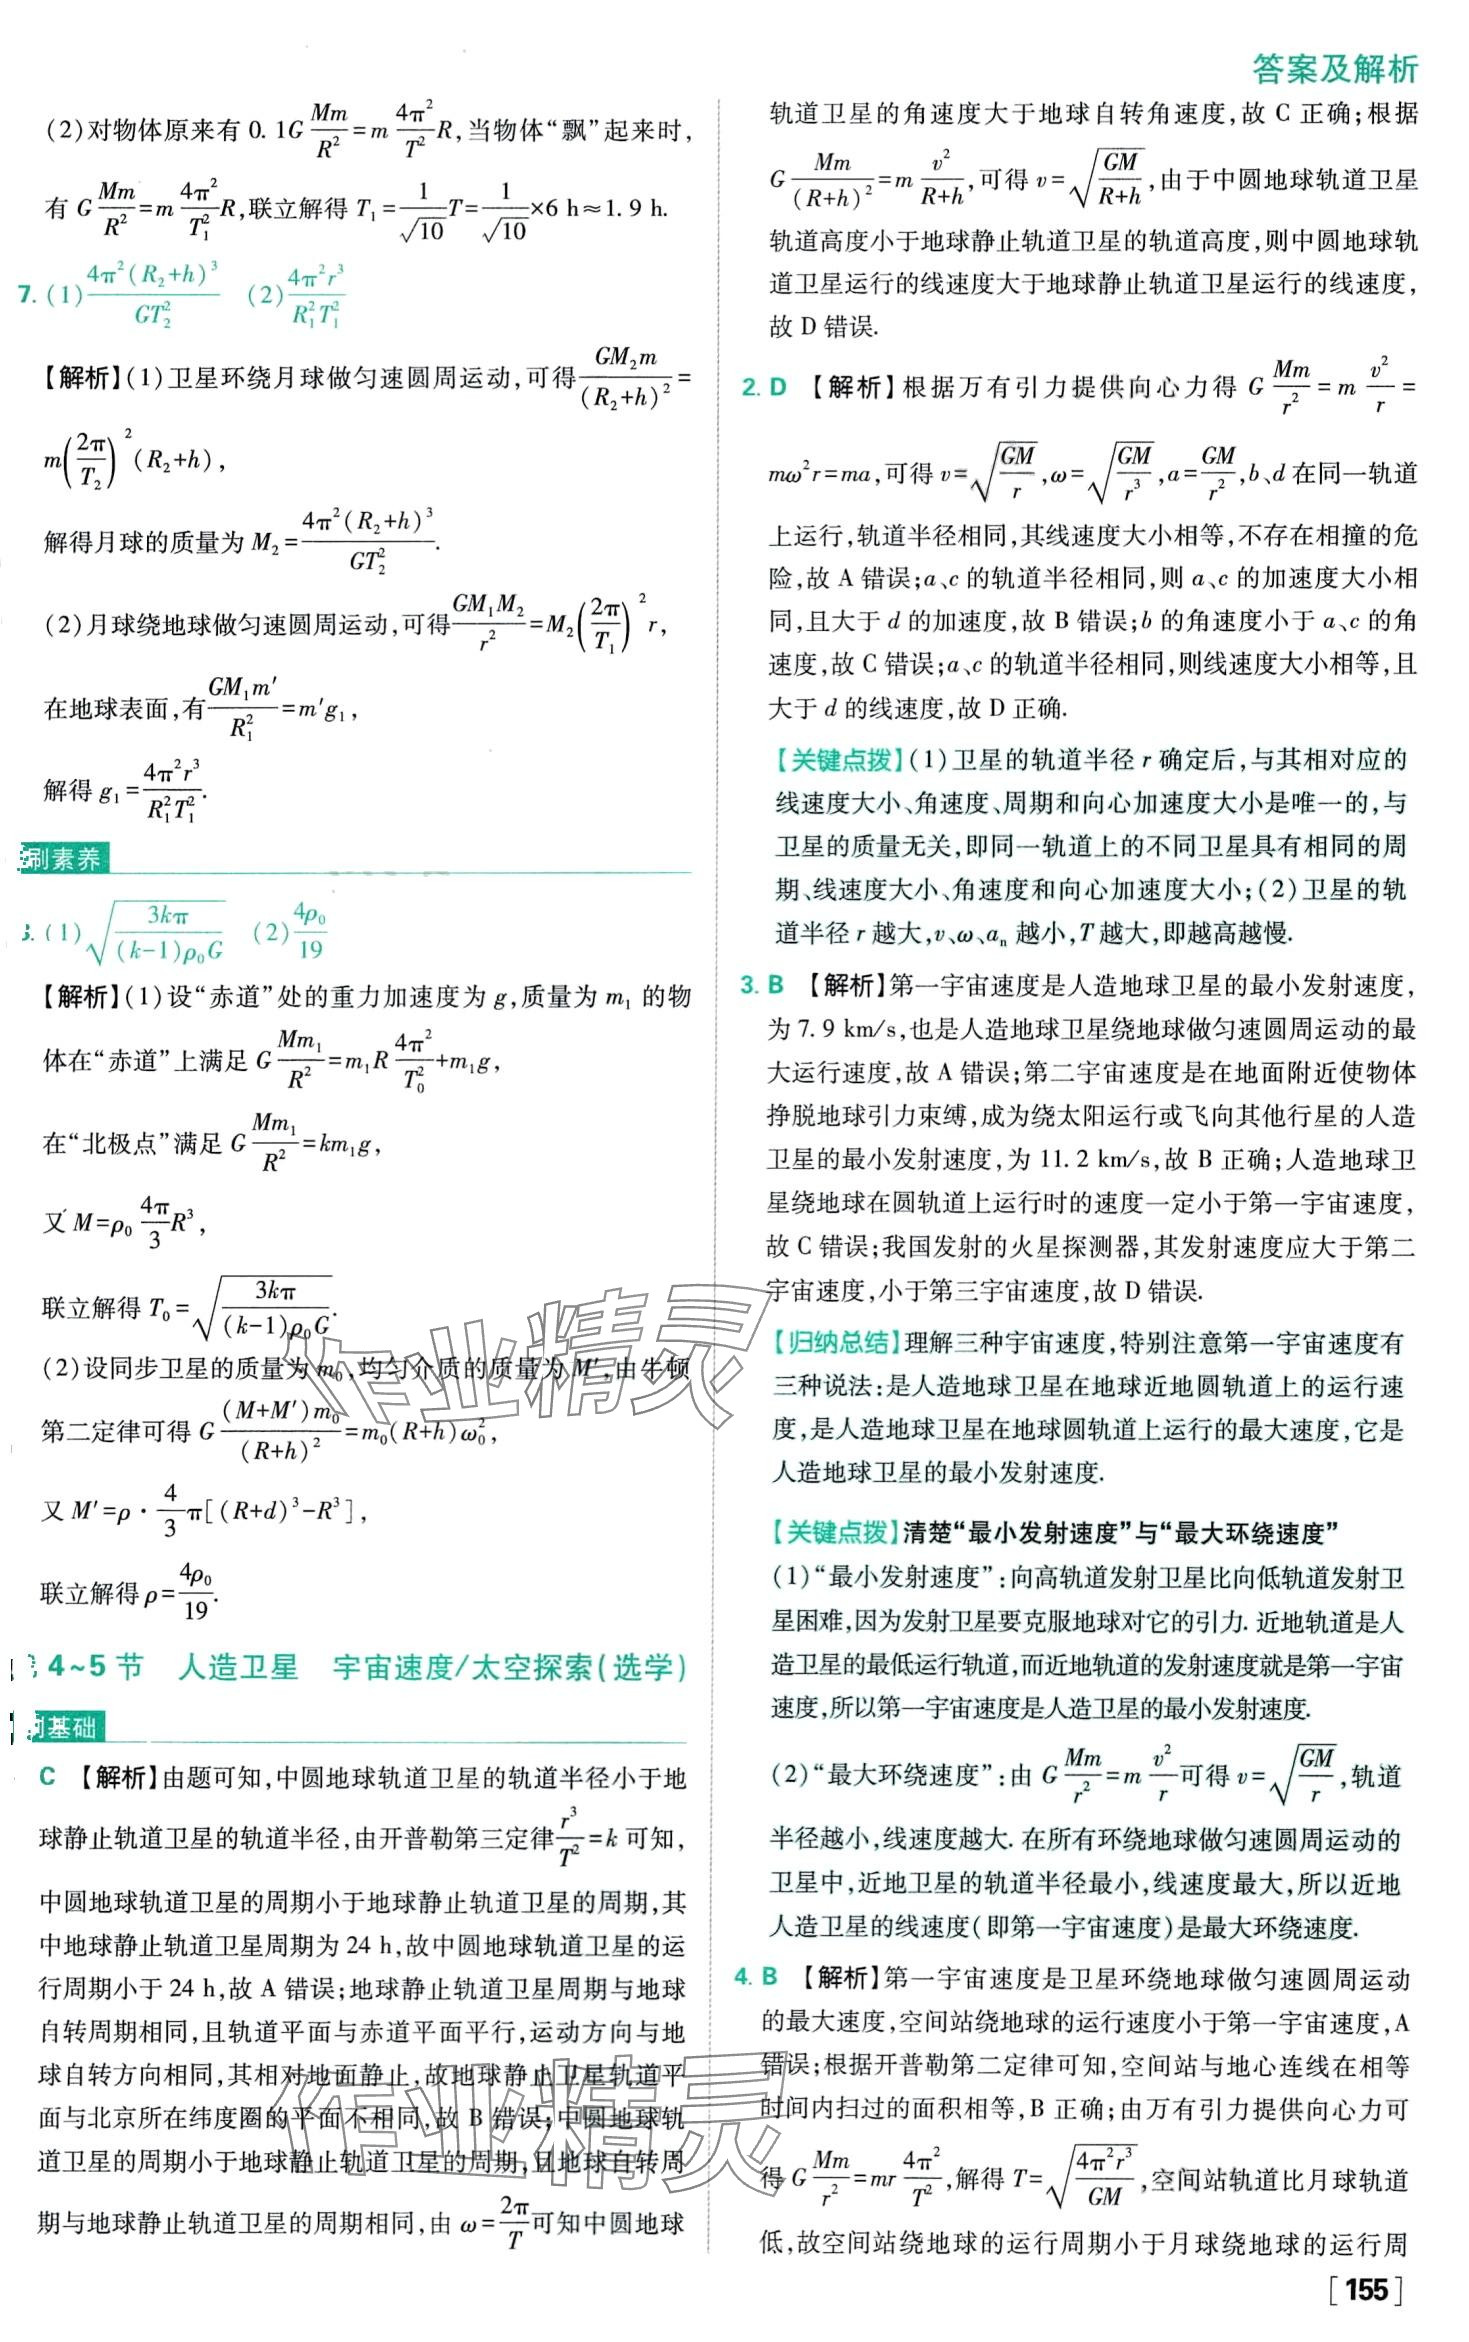 答案及解析
(2)对物体原来有 0.1G Mm/R² = m 4π²/T² R,当物体“飘”起来时,
有 G Mm/R² = m 4π²/T₁² R,联立解得 T₁ = 1/√10 T = 1/√10 ×6 h≈1.9 h.
7. (1) 4π²(R₂+h)³/GT₂² (2) 4π²r³/R₁²T₁²
【解析】(1)卫星环绕月球做匀速圆周运动,可得 GM₂m/(R₂+h)² =
m(2π/T₂)²(R₂+h),
解得月球的质量为 M₂ = 4π²(R₂+h)³/GT₂².
(2)月球绕地球做匀速圆周运动,可得 GM₁M₂/r² = M₂(2π/T₁)² r,
在地球表面,有 GM₁m′/R₁² = m′g₁,
解得 g₁ = 4π²r³/R₁²T₁².
刷素养
(1) √(3kπ/((k-1)ρ₀G)) (2) 4ρ₀/19
【解析】(1)设“赤道”处的重力加速度为 g,质量为 m₁ 的物
体在“赤道”上满足 G Mm₁/R² = m₁R 4π²/T₀² + m₁g,
在“北极点”满足 G Mm₁/R² = km₁g,
又 M=ρ₀ 4π/3 R³,
联立解得 T₀ = √(3kπ/((k-1)ρ₀G)).
(2)设同步卫星的质量为 m₀,均匀介质的质量为 M′,由牛顿
第二定律可得 G (M+M′)m₀/(R+h)² = m₀(R+h)ω₀²,
又 M′=ρ· 4/3 π[(R+d)³-R³],
联立解得 ρ = 4ρ₀/19.
4~5 节 人造卫星 宇宙速度/太空探索(选学)
基础
C 【解析】由题可知,中圆地球轨道卫星的轨道半径小于地
球静止轨道卫星的轨道半径,由开普勒第三定律 r³/T² = k 可知,
中圆地球轨道卫星的周期小于地球静止轨道卫星的周期,其
中地球静止轨道卫星周期为 24 h,故中圆地球轨道卫星的运
行周期小于 24 h,故 A 错误;地球静止轨道卫星周期与地球
自转周期相同,且轨道平面与赤道平面平行,运动方向与地
球自转方向相同,其相对地面静止,故地球静止卫星轨道平
面与北京所在纬度圈的平面不相同,故 B 错误;中圆地球轨
道卫星的周期小于地球静止轨道卫星的周期,且地球自转周
期与地球静止轨道卫星的周期相同,由 ω = 2π/T 可知中圆地球
轨道卫星的角速度大于地球自转角速度,故 C 正确;根据
G Mm/(R+h)² = m v²/(R+h),可得 v = √(GM/(R+h)),由于中圆地球轨道卫星
轨道高度小于地球静止轨道卫星的轨道高度,则中圆地球轨
道卫星运行的线速度大于地球静止轨道卫星运行的线速度,
故 D 错误.
2. D 【解析】根据万有引力提供向心力得 G Mm/r² = m v²/r =
mω²r=ma,可得 v = √(GM/r),ω = √(GM/r³),a = GM/r²,b、d 在同一轨道
上运行,轨道半径相同,其线速度大小相等,不存在相撞的危
险,故 A 错误;a、c 的轨道半径相同,则 a、c 的加速度大小相
同,且大于 d 的加速度,故 B 错误;b 的角速度小于 a、c 的角
速度,故 C 错误;a、c 的轨道半径相同,则线速度大小相等,且
大于 d 的线速度,故 D 正确.
【关键点拨】(1)卫星的轨道半径 r 确定后,与其相对应的
线速度大小、角速度、周期和向心加速度大小是唯一的,与
卫星的质量无关,即同一轨道上的不同卫星具有相同的周
期、线速度大小、角速度和向心加速度大小;(2)卫星的轨
道半径 r 越大,v、ω、aₙ 越小,T 越大,即越高越慢.
3. B 【解析】第一宇宙速度是人造地球卫星的最小发射速度,
为 7.9 km/s,也是人造地球卫星绕地球做匀速圆周运动的最
大运行速度,故 A 错误;第二宇宙速度是在地面附近使物体
挣脱地球引力束缚,成为绕太阳运行或飞向其他行星的人造
卫星的最小发射速度,为 11.2 km/s,故 B 正确;人造地球卫
星绕地球在圆轨道上运行时的速度一定小于第一宇宙速度,
故 C 错误;我国发射的火星探测器,其发射速度应大于第二
宇宙速度,小于第三宇宙速度,故 D 错误.
【归纳总结】理解三种宇宙速度,特别注意第一宇宙速度有
三种说法:是人造地球卫星在地球近地圆轨道上的运行速
度,是人造地球卫星在地球圆轨道上运行的最大速度,它是
人造地球卫星的最小发射速度.
【关键点拨】清楚“最小发射速度”与“最大环绕速度”
(1)“最小发射速度”:向高轨道发射卫星比向低轨道发射卫
星困难,因为发射卫星要克服地球对它的引力.近地轨道是人
造卫星的最低运行轨道,而近地轨道的发射速度就是第一宇宙
速度,所以第一宇宙速度是人造卫星的最小发射速度.
(2)“最大环绕速度”:由 G Mm/r² = m v²/r 可得 v = √(GM/r),轨道
半径越小,线速度越大.在所有环绕地球做匀速圆周运动的
卫星中,近地卫星的轨道半径最小,线速度最大,所以近地
人造卫星的线速度(即第一宇宙速度)是最大环绕速度.
4. B 【解析】第一宇宙速度是卫星环绕地球做匀速圆周运动
的最大速度,空间站绕地球的运行速度小于第一宇宙速度,A
错误;根据开普勒第二定律可知,空间站与地心连线在相等
时间内扫过的面积相等,B 正确;由万有引力提供向心力可
得 G Mm/r² = mr 4π²/T²,解得 T = √(4π²r³/GM),空间站轨道比月球轨道
低,故空间站绕地球的运行周期小于月球绕地球的运行周
[155]
作业精灵
作业精灵